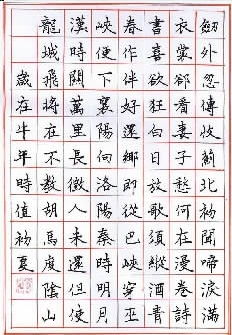 劒外忽傳收薊北初聞啼淚滿
衣裳卻看妻子愁何在漫卷詩
書喜欲狂白日放歌須縱酒青
春作伴好還鄉即從巴峽穿巫
峽便下襄陽向洛陽秦時明月
漢時關萬里長征人未還但使
龍城飛將在不教胡馬度陰山
歲在牛年時值初夏